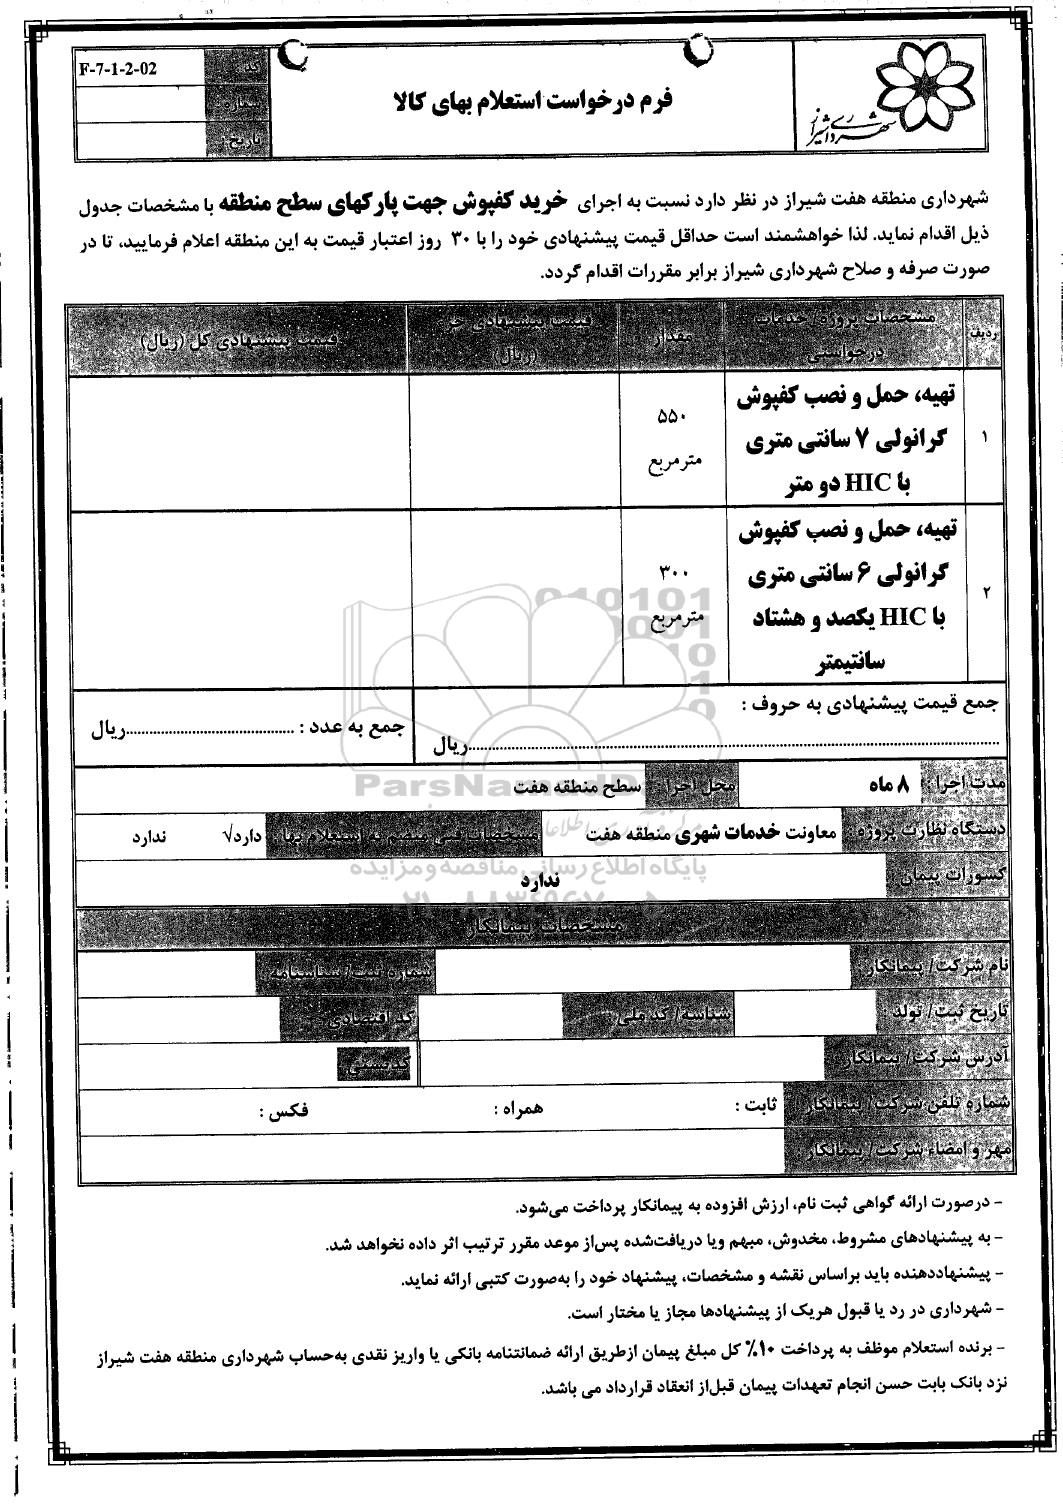 شهرداری شیراز
فرم درخواست استعلام بهای کالا
کد : F-7-1-2-02
شماره :
تاریخ :
شهرداری منطقه هفت شیراز در نظر دارد نسبت به اجرای خرید کفپوش جهت پارکهای سطح منطقه با مشخصات جدول
ذیل اقدام نماید. لذا خواهشمند است حداقل قیمت پیشنهادی خود را با ۳۰ روز اعتبار قیمت به این منطقه اعلام فرمایید، تا در
صورت صرفه و صلاح شهرداری شیراز برابر مقررات اقدام گردد.
ردیف
مشخصات پروژه / خدمات
درخواستی
مقدار
قیمت پیشنهادی جز
(ریال)
قیمت پیشنهادی کل (ریال)
۱
تهیه، حمل و نصب کفپوش
گرانولی ۷ سانتی متری
با HIC دو متر
۵۵۰
مترمربع
۲
تهیه، حمل و نصب کفپوش
گرانولی ۶ سانتی متری
با HIC یکصد و هشتاد
سانتیمتر
۳۰۰
مترمربع
جمع قیمت پیشنهادی به حروف :
ریال
جمع به عدد : ریال
مدت اجرا : ۸ ماه
محل اجرا : سطح منطقه هفت
دستگاه نظارت پروژه : معاونت خدمات شهری منطقه هفت
مشخصات فنی منضم به استعلام بها : دارد√ ندارد
کسورات پیمان ندارد
مشخصات پیمانکار
نام شرکت/ پیمانکار
شماره ثبت/ شناسنامه
تاریخ ثبت/ تولد
شناسه/ کد ملی
کد اقتصادی
آدرس شرکت/ پیمانکار
کدپستی
شماره تلفن شرکت/ پیمانکار ثابت : همراه : فکس :
مهر و امضاء شرکت/ پیمانکار
- درصورت ارائه گواهی ثبت نام، ارزش افزوده به پیمانکار پرداخت می‌شود.
- به پیشنهادهای مشروط، مخدوش، مبهم ویا دریافت‌شده پس‌از موعد مقرر ترتیب اثر داده نخواهد شد.
- پیشنهاددهنده باید براساس نقشه و مشخصات، پیشنهاد خود را به‌صورت کتبی ارائه نماید.
- شهرداری در رد یا قبول هریک از پیشنهادها مجاز یا مختار است.
- برنده استعلام موظف به پرداخت ۱۰% کل مبلغ پیمان ازطریق ارائه ضمانتنامه بانکی یا واریز نقدی به‌حساب شهرداری منطقه هفت شیراز
نزد بانک بابت حسن انجام تعهدات پیمان قبل‌از انعقاد قرارداد می باشد.
پایگاه اطلاع رسانی مناقصه و مزایده